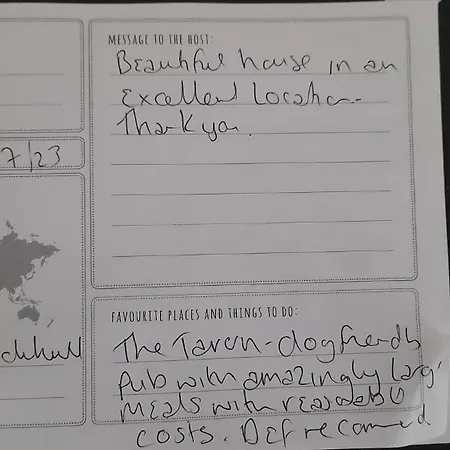 MESSAGE TO THE HOST:
Beautiful house in an
Excellent Location.
Thank you.
7/23
FAVOURITE PLACES AND THINGS TO DO:
The Tavern - dog friendly
pub with amazingly large
meals with reasonable
costs. Def recommend